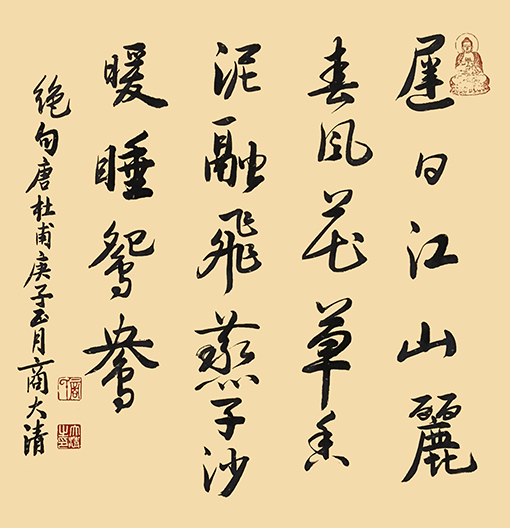 遲日江山麗
春風花草香
泥融飛燕子沙
暖睡鴛鴦
絕句唐杜甫庚子正月商大清